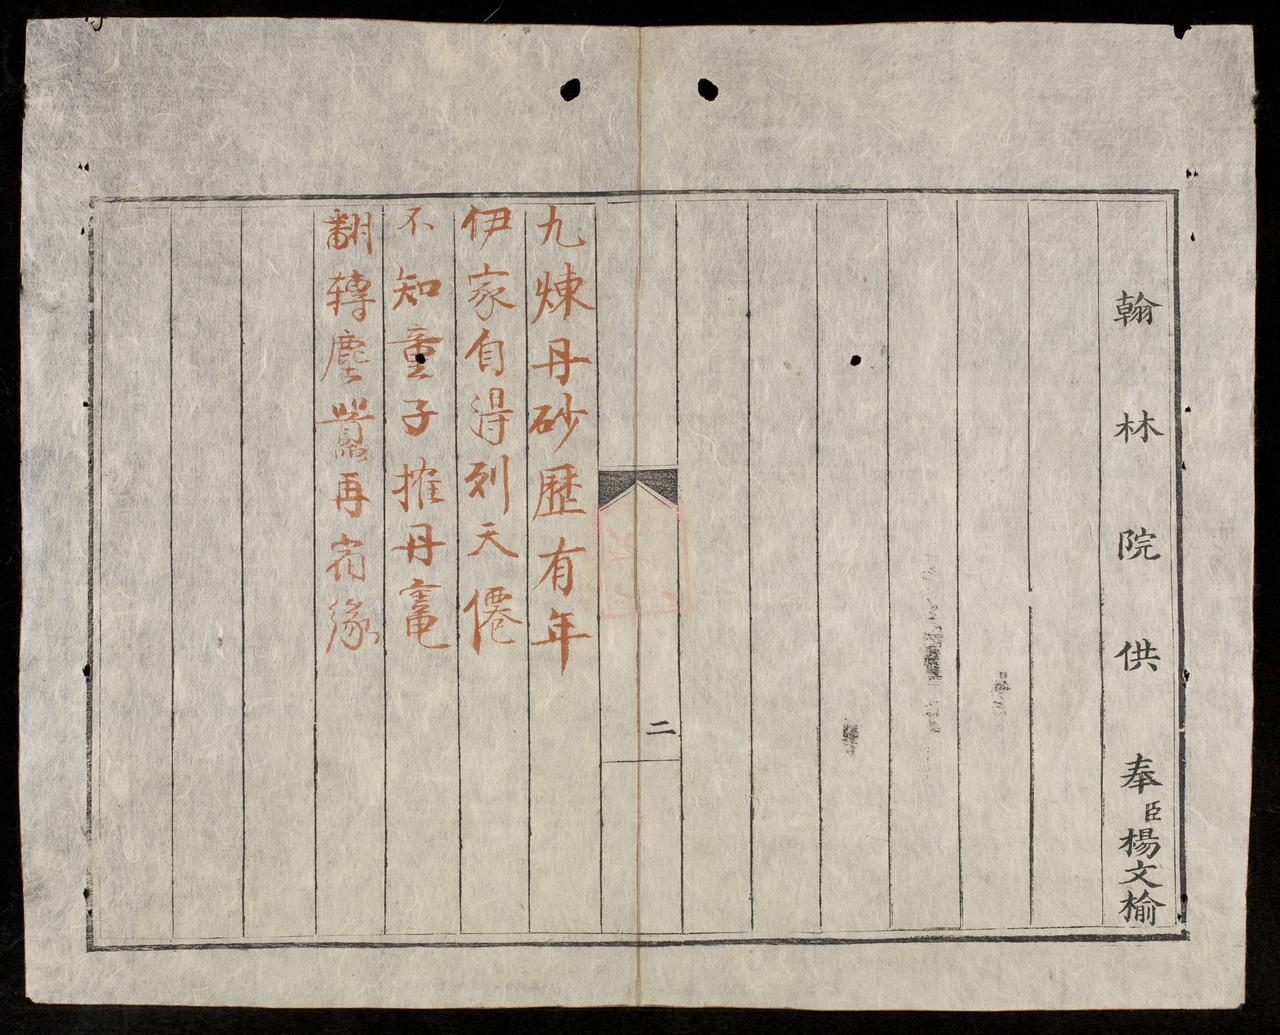 翰林院供奉臣楊文榆
二
九煉丹砂歷有年
伊家自淂列天僊
不知童子摧丹竃
翻轉塵嚣再宿緣